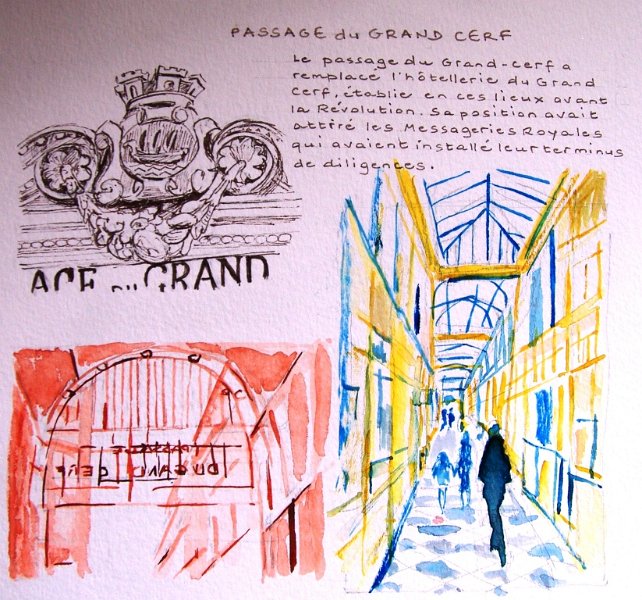 PASSAGE du GRAND CERF
Le passage du Grand-Cerf a
remplacé l'hôtellerie du Grand
Cerf, établie en ces lieux avant
la Révolution. Sa position avait
attiré les Messageries Royales
qui avaient installé leur terminus
de diligences.
AGE DU GRAND